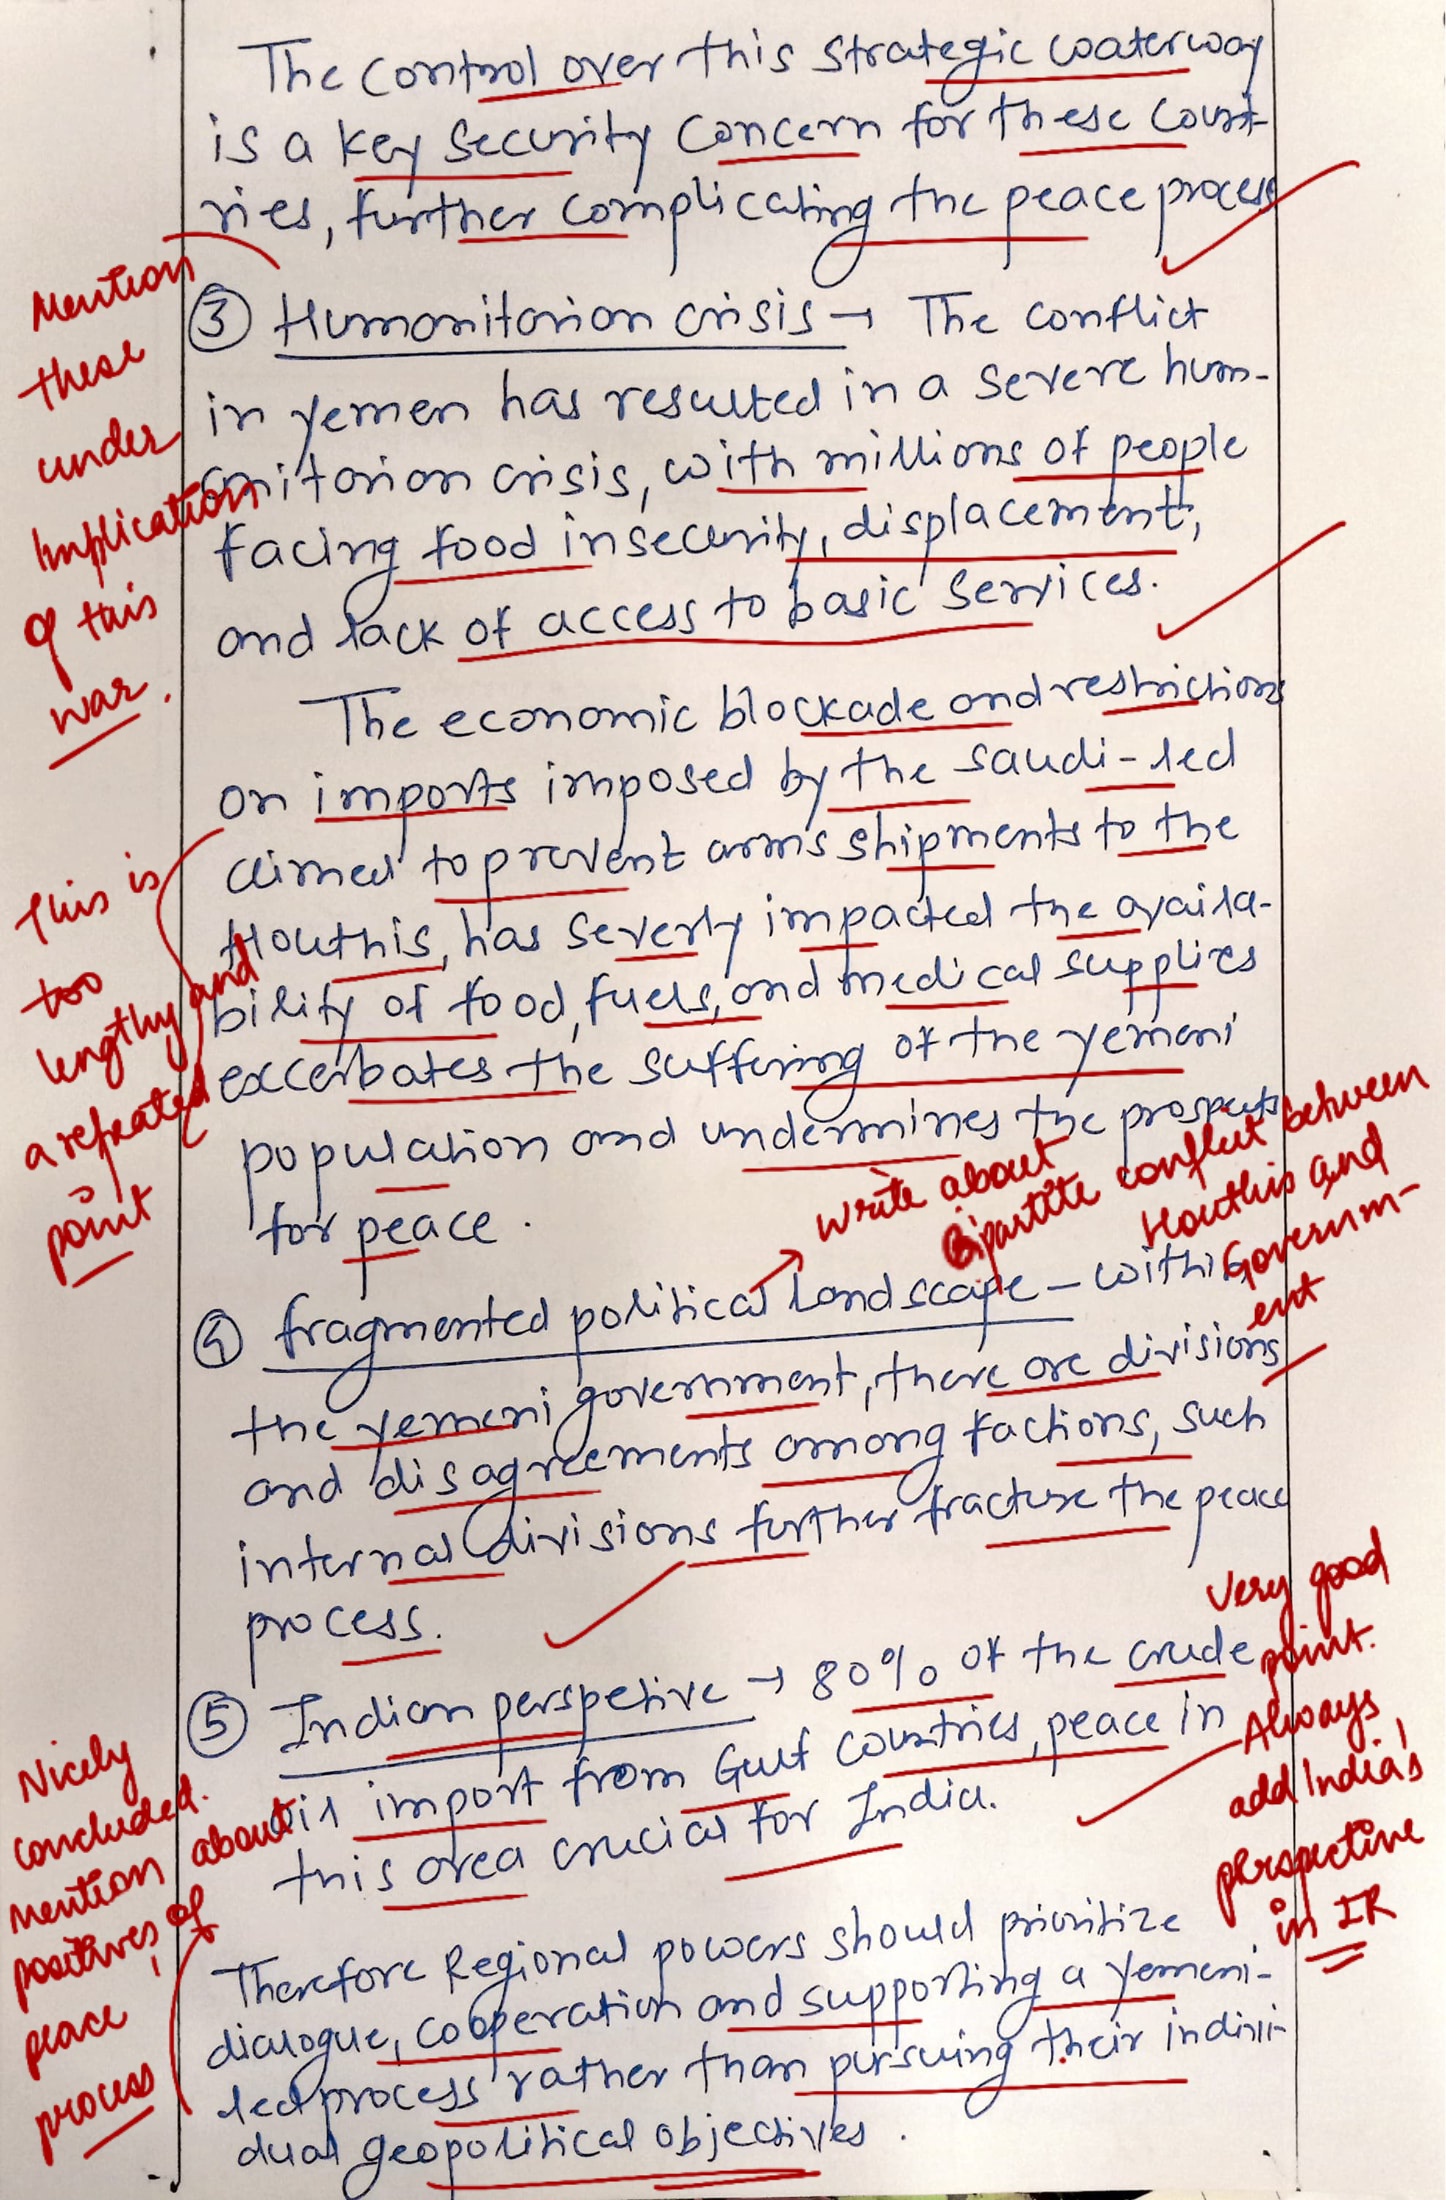 The control over this strategic waterway
is a key security concern for these count-
ries, further complicating the peace process
Mention
these
under
Implication
of this
war.
③ Humanitarian crisis → The conflict
in yemen has resulted in a severe hum-
anitarian crisis, with millions of people
facing food insecurity, displacement,
and lack of access to basic services.
The economic blockade and restrictions
on imports imposed by the saudi-led
aimed to prevent arms shipments to the
Houthis, has severly impacted the availa-
bility of food, fuels, and medical supplies
excerbates the suffering of the yemeni
population and undermines the prospects
for peace.
This is
too
lengthy and
a repeated
point
write about
Bipartite conflict between
Houthis and
Governm-
ent
④ fragmented political landscape - within
the yemeni government, there are divisions
and disagreements among factions, such
internal divisions further fracture the peace
process.
⑤ Indian perspetive → 80% of the crude
oil import from Gulf countries, peace in
this area crucial for India.
Very good
point.
Always
add India's
perspective
in IR
Therefore Regional powers should prioritize
dialogue, cooperation and supporting a yemeni-
led process rather than pursuing their indivi-
dual geopolitical objectives.
Nicely
concluded.
mention about
positives of
peace
process